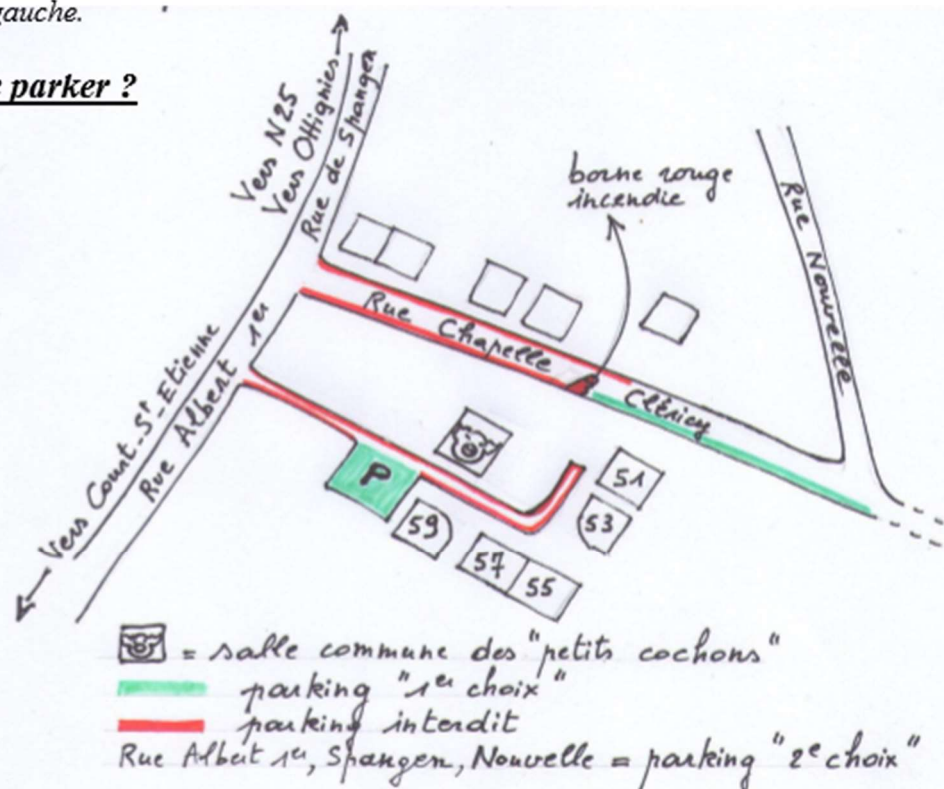 gauche.
parker ?
Vers N25
Vers Ottignies
Rue de Spangen
borne rouge
incendie
Rue Nouvelle
Rue Chapelle Cléricy
Vers Court-St-Etienne
Rue Albert 1er
P
51
53
59
57
55
= salle commune des "petits cochons"
parking "1er choix"
parking interdit
Rue Albert 1er, Spangen, Nouvelle = parking "2e choix"